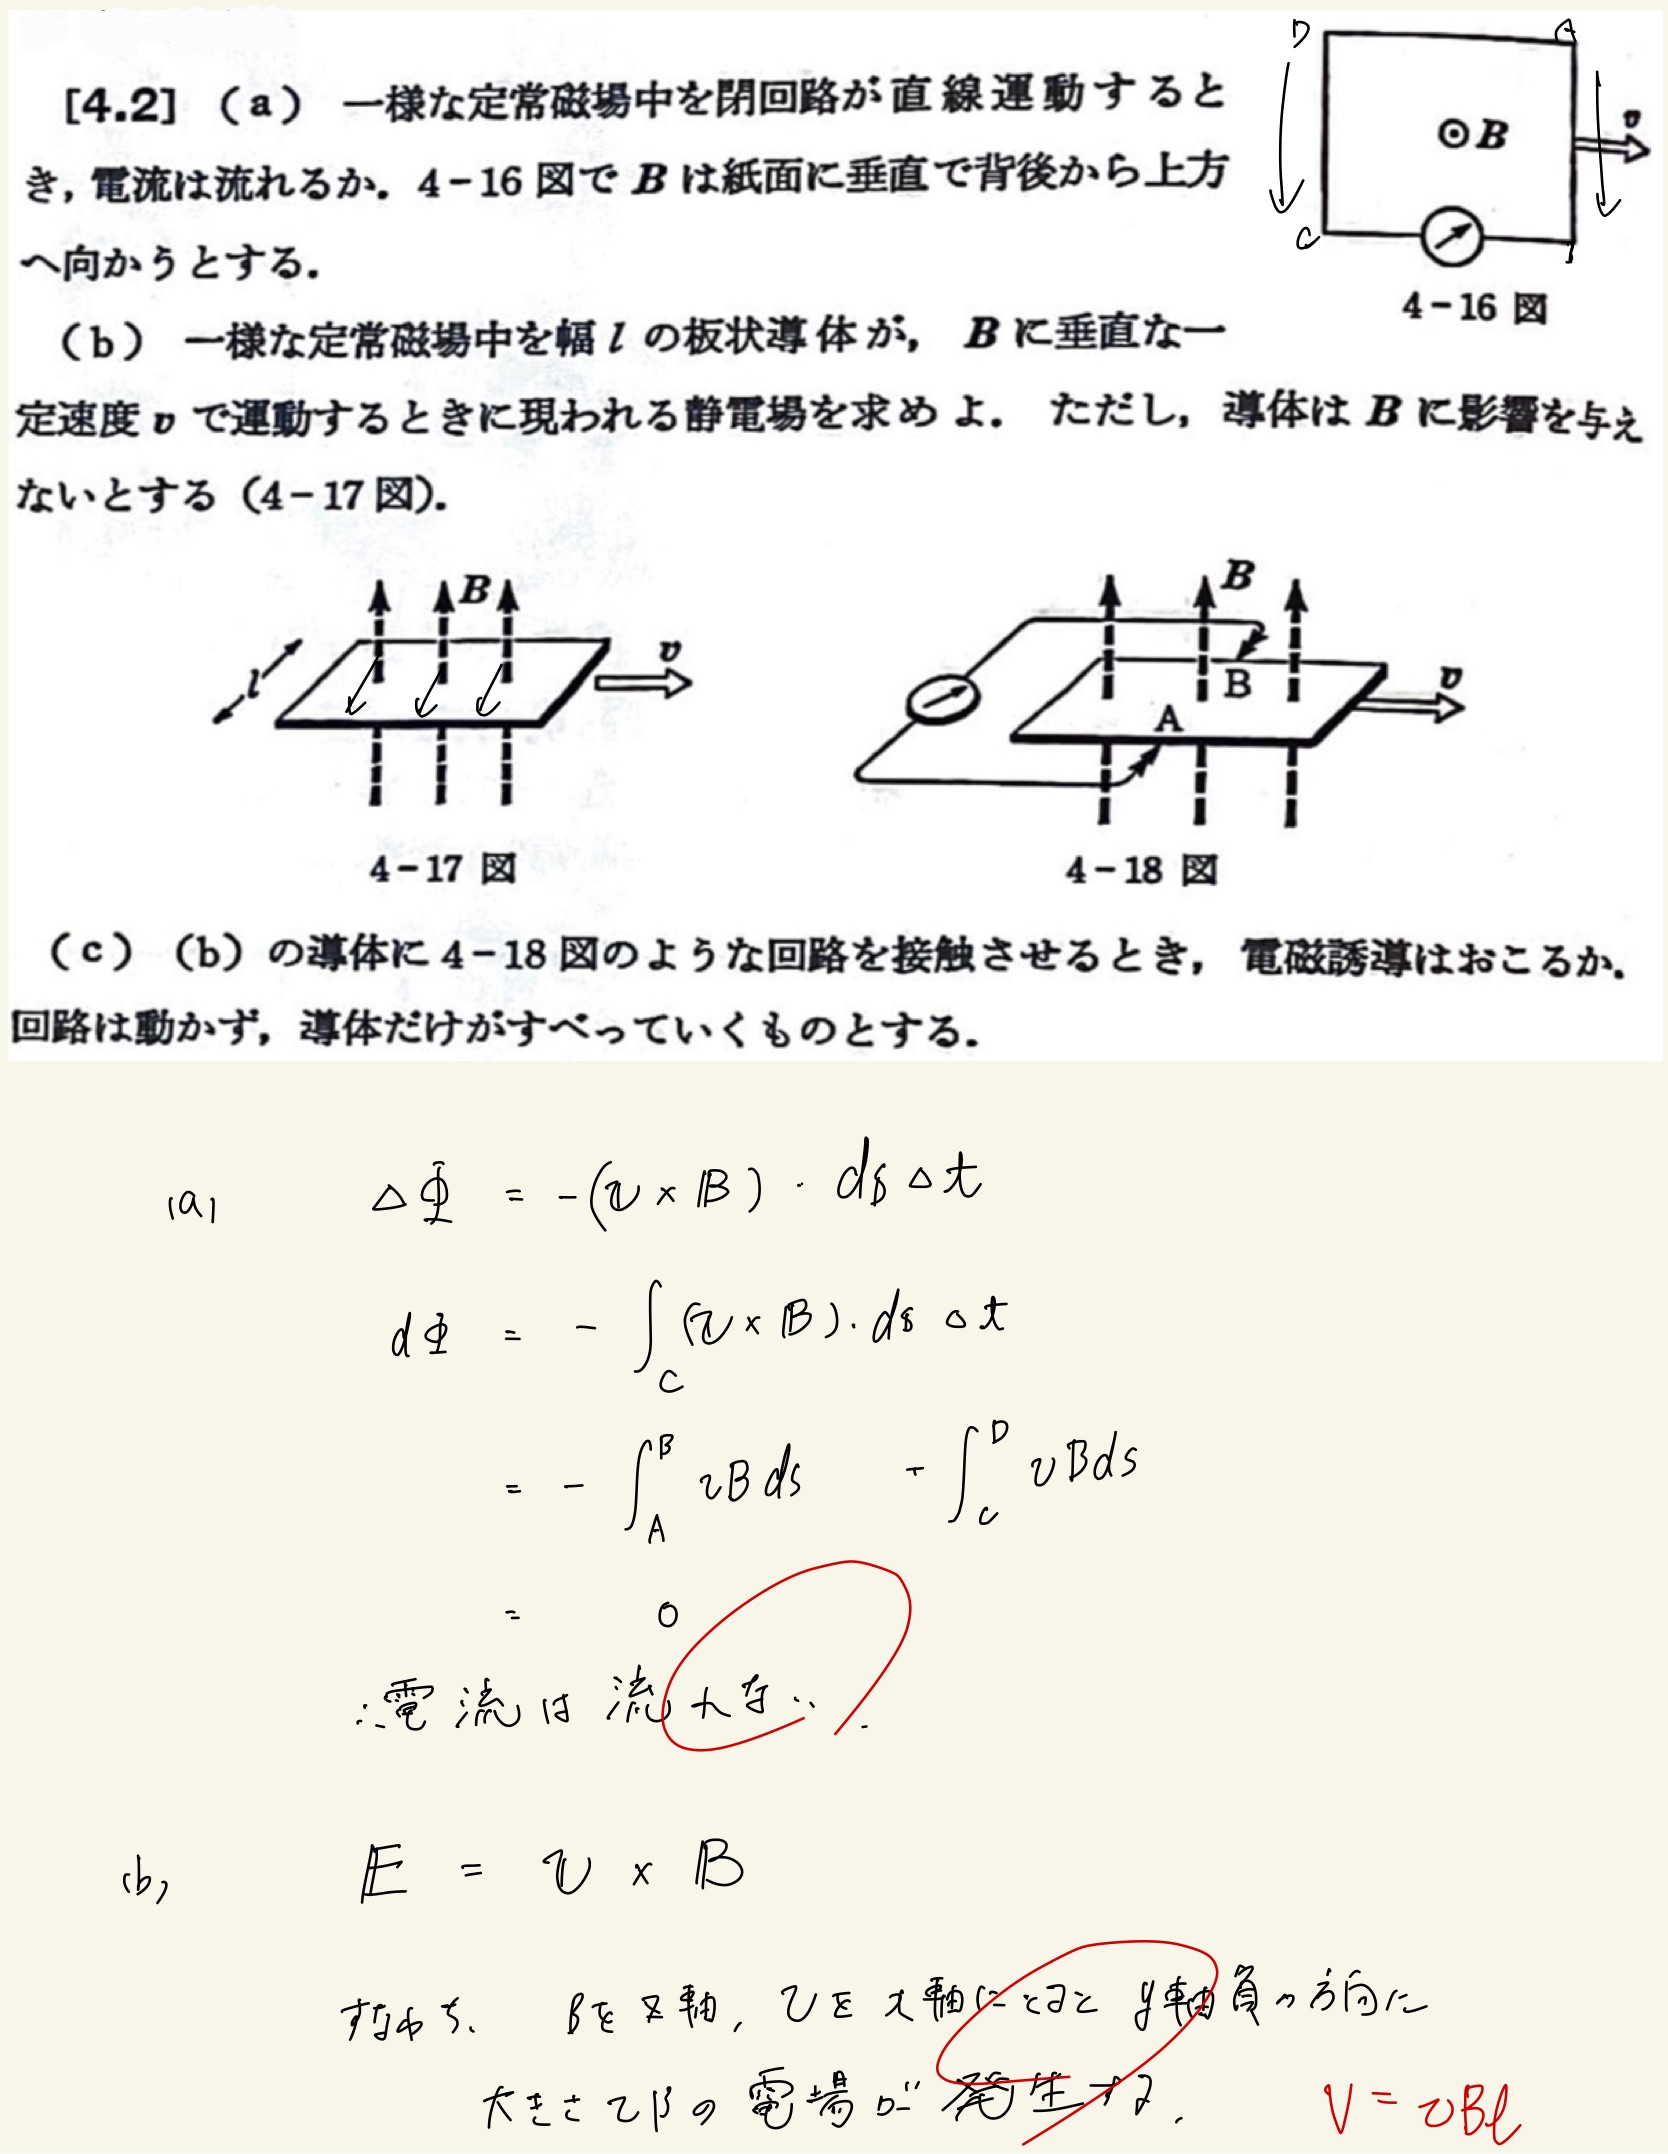 [4.2] (a) 一様な定常磁場中を閉回路が直線運動すると
き，電流は流れるか．4-16図でBは紙面に垂直で背後から上方
へ向かうとする．
D
A
⊙B
v
C
4-16 図
(b) 一様な定常磁場中を幅lの板状導体が，Bに垂直な一
定速度vで運動するときに現われる静電場を求めよ．ただし，導体はBに影響を与え
ないとする（4-17図）．
B
l
v
4-17 図
B
B
A
v
4-18 図
(c) (b)の導体に4-18図のような回路を接触させるとき，電磁誘導はおこるか．
回路は動かず，導体だけがすべっていくものとする．
(a) ΔΦ = -(v × B)・ds Δt
dΦ = - ∫_C (v × B)・ds Δt
= - ∫_A^B vB ds - ∫_C^D vB ds
= 0
∴電流は流れない．
(b) E = v × B
すなわち、Bをz軸，vをx軸にとると y軸負の方向に
大きさvBの電場が発生する．
V = vBl